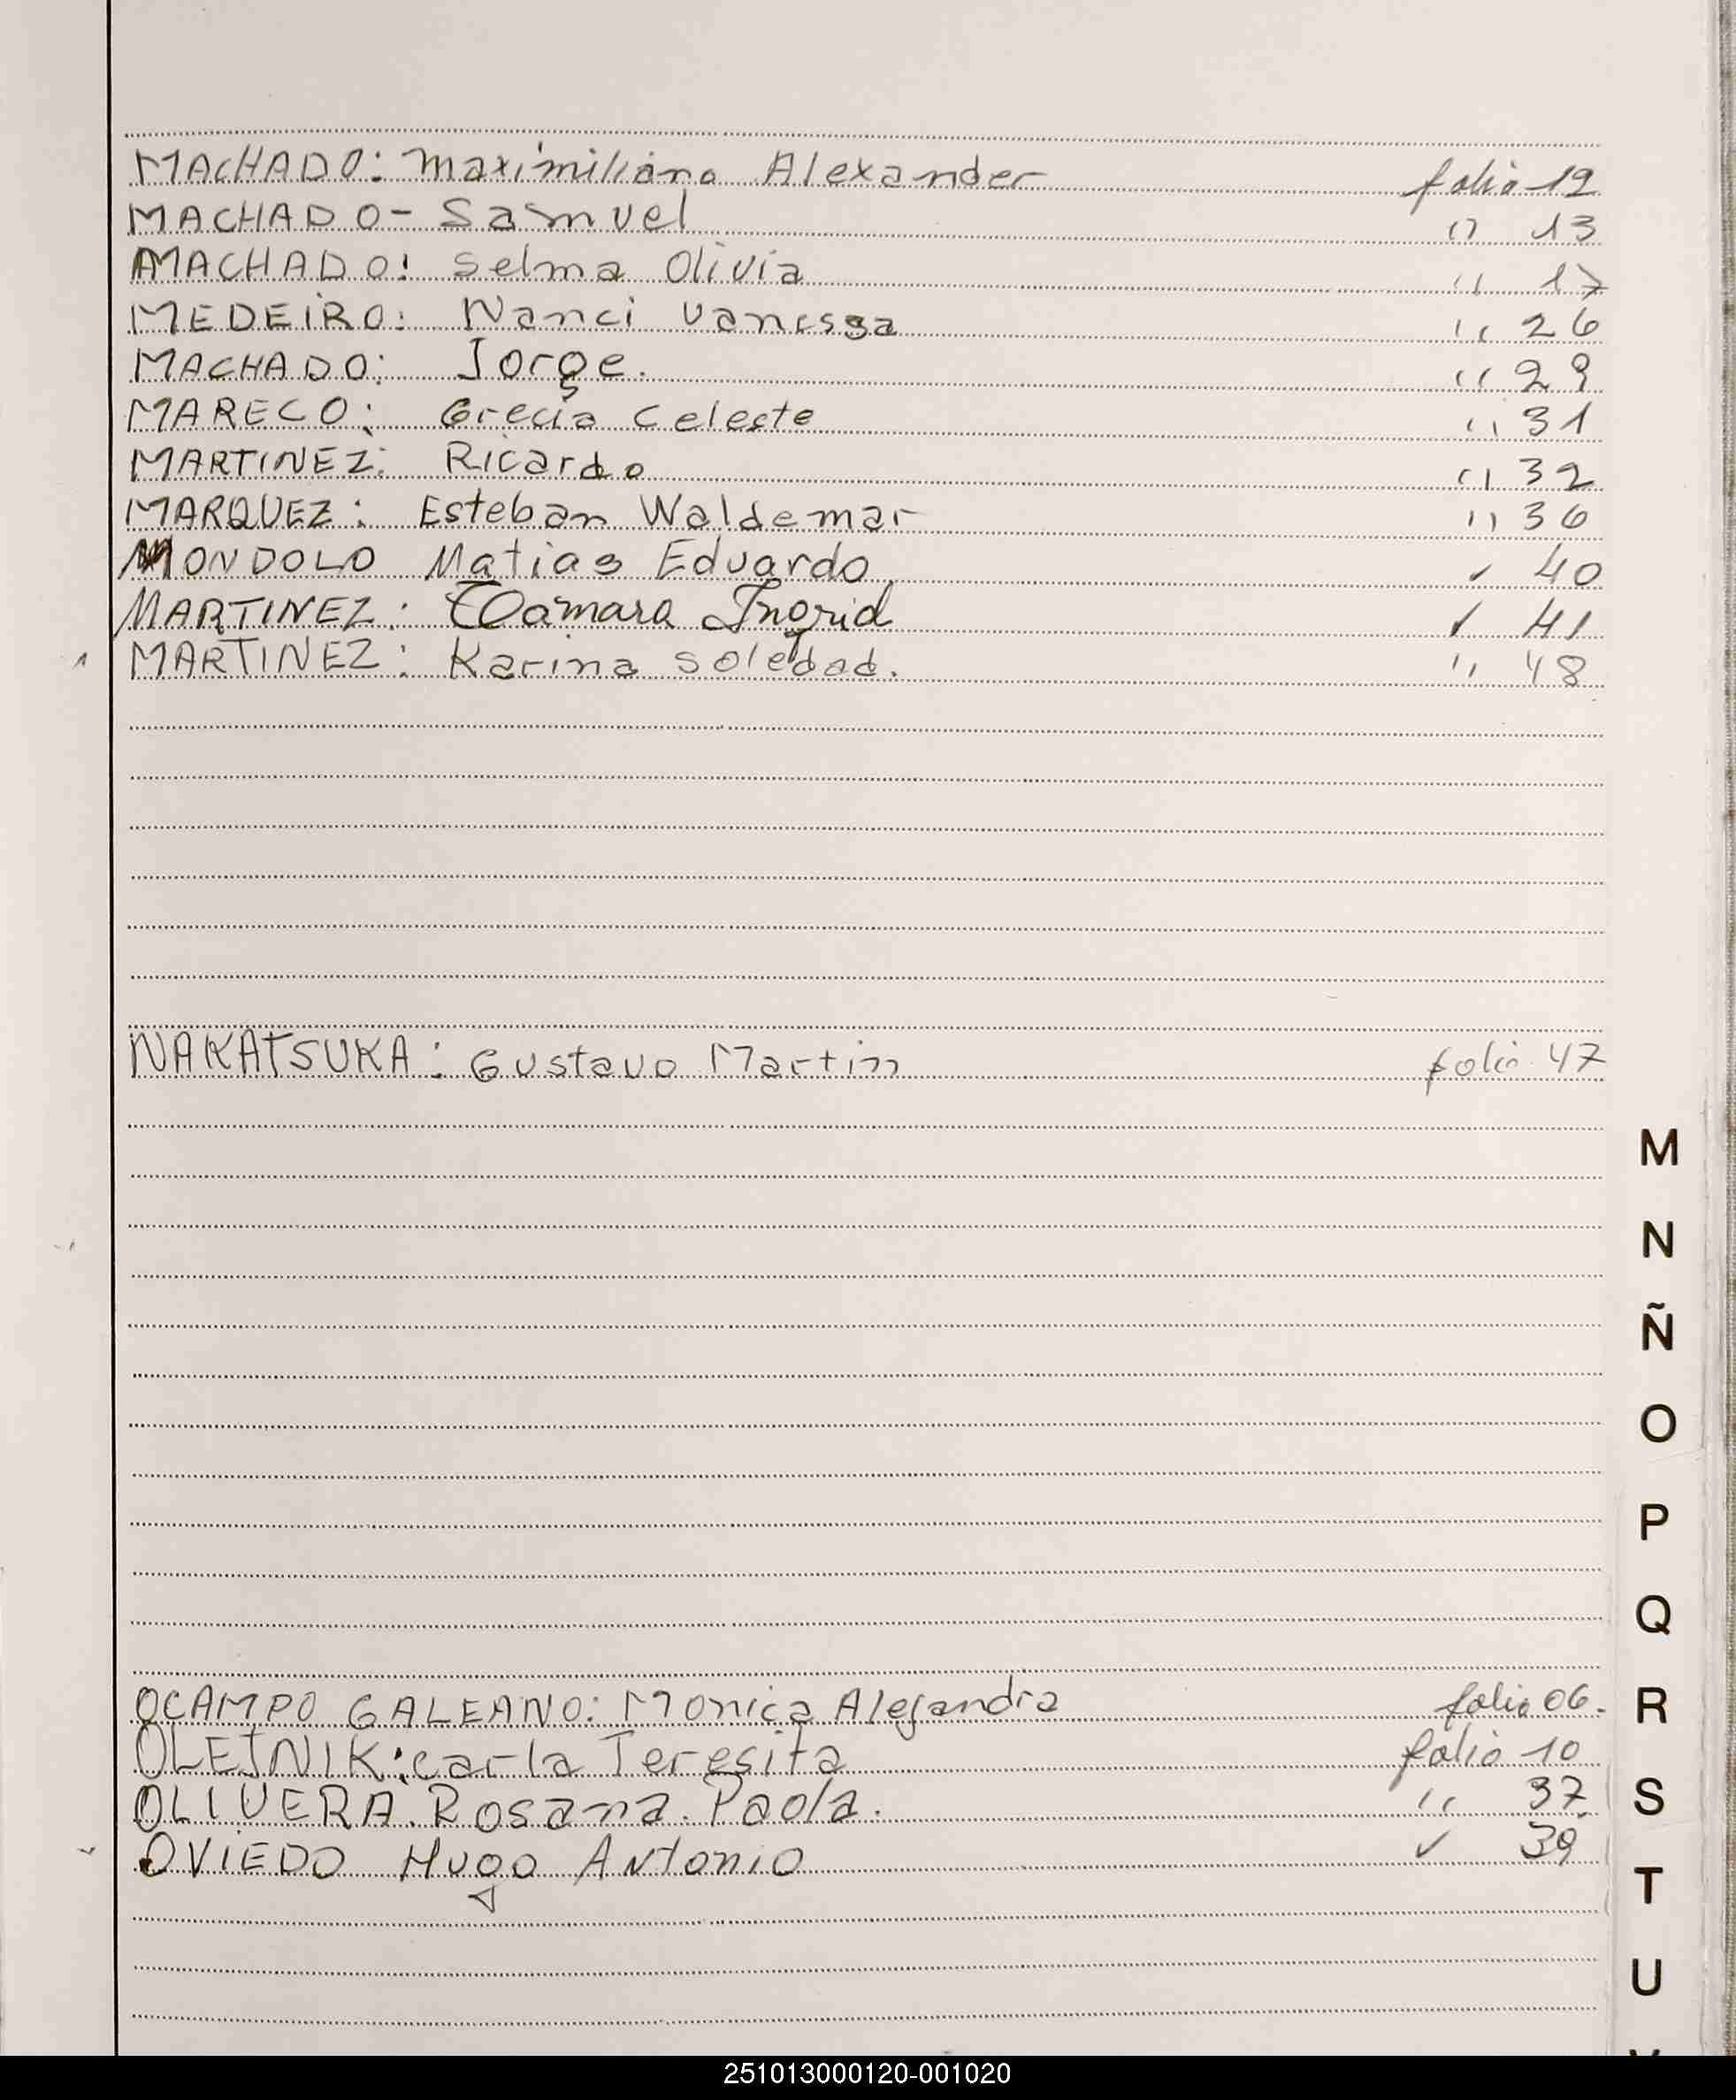 MACHADO: Maximiliano Alexander folio 12
MACHADO- Samuel " 13
MACHADO: Selma Olivia " 17
MEDEIRO: Nanci Vanessa " 26
MACHADO: Jorge. " 29
MARECO: Grecia Celeste " 31
MARTINEZ: Ricardo " 32
MARQUEZ: Esteban Waldemar " 36
MONDOLO Matias Eduardo " 40
MARTINEZ: Tamara Ingrid " 41
MARTINEZ: Karina Soledad. " 48
NAKATSUKA: Gustavo Martin folio 47
M
N
Ñ
O
P
Q
OCAMPO GALEANO: Monica Alejandra folio 06.
R
OLEJNIK: Carla Teresita folio 10
OLIVERA. Rosana. Paola. " 37
S
OVIEDO Hugo Antonio " 39
T
U
251013000120-001020